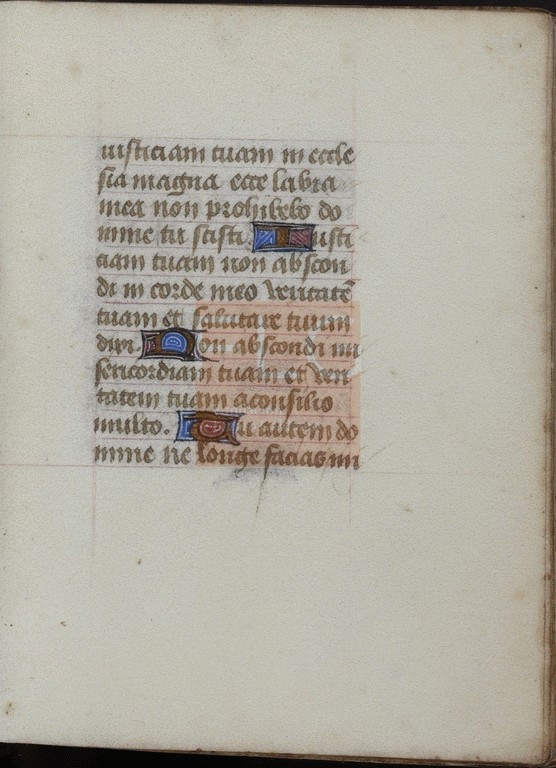 iusticiam tuam in eccle
sia magna ecce labia
mea non prohibebo do
mine tu scisti. Iusti
ciam tuam non abscon
di in corde meo veritatē
tuam et salutare tuum
dixi. Non abscondi mi
sericordiam tuam et veri
tatem tuam aconsilio
multo. Tu autem do
mine ne longe facias mi